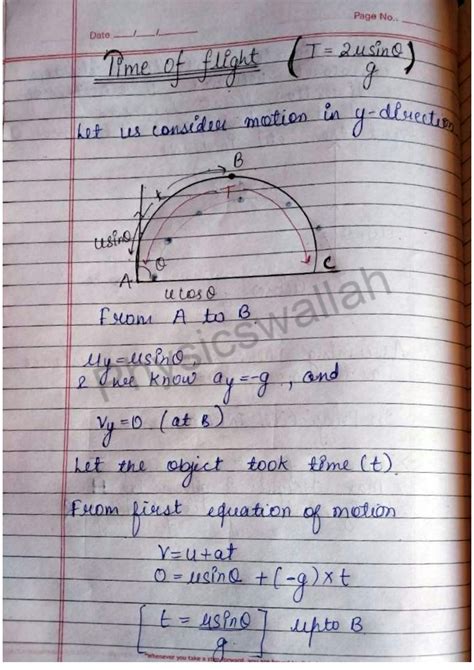 Page No..
Date ___/___/___
Time of flight (T = 2usinθ/g)
Let us consider motion in y-direction
B
t
T
usinθ
A
θ
C
ucosθ
Physicswallah
From A to B
uy=usinθ,
& we know ay=-g, and
vy=0 (at B)
Let the object took time (t)
From first equation of motion
v=u+at
0=usinθ +(-g)×t
[t = usinθ/g] upto B
"whenever you take a step forward